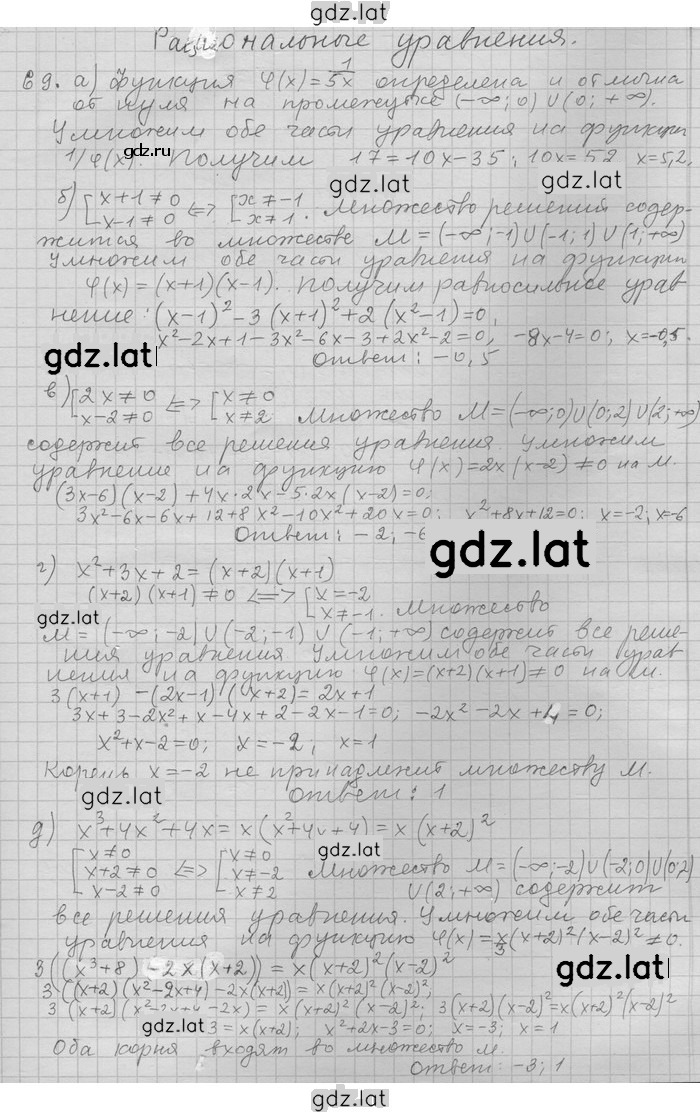 gdz.lat
Рациональные уравнения.
69. а) Функция φ(x)=1/5x определена и отлична
от нуля на промежутке (-∞; 0) ∪ (0; +∞).
Умножим обе части уравнения на функции
1/φ(x). Получим 17=10x-35; 10x=52 x=5,2.
gdz.ru
gdz.lat gdz.lat
б) [x+1≠0 x-1≠0 <=> [x≠-1 x≠1. Множество решений содер-
жится во множестве M=(-∞;-1)∪(-1;1)∪(1;+∞)
Умножим обе части уравнения на функции
φ(x)=(x+1)(x-1). Получим равносильное урав-
gdz.lat
нение: (x-1)²-3(x+1)²+2(x²-1)=0,
x²-2x+1-3x²-6x-3+2x²-2=0, -8x-4=0; x=-0,5.
gdz.lat
Ответ: -0,5
в) [2x≠0 x-2≠0 <=> [x≠0 x≠2. Множество M=(-∞;0)∪(0;2)∪(2;+∞)
gdz.lat
содержит все решения уравнения Умножим
уравнение на функцию φ(x)=2x(x-2)≠0 на M.
(3x-6)(x-2)+4x·2x-5·2x(x-2)=0;
3x²-6x-6x+12+8x²-10x²+20x=0; x²+8x+12=0; x=-2; x=-6
Ответ: -2; -6
gdz.lat
г) x²+3x+2=(x+2)(x+1)
(x+2)(x+1)≠0 <=> [x=-2 x≠-1. Множество
gdz.lat
M=(-∞;-2)∪(-2;-1)∪(-1;+∞) содержит все реше-
ния уравнения Умножим обе части урав
нения на функцию φ(x)=(x+2)(x+1)≠0 на M.
gdz.lat
3(x+1)-(2x-1)(x+2)=2x+1
3x+3-2x²+x-4x+2-2x-1=0; -2x²-2x+4=0;
x²+x-2=0; x=-2; x=1
Корень x=-2 не принадлежит множеству M.
gdz.lat
Ответ: 1
д) x³+4x²+4x=x(x²+4x+4)=x(x+2)²
gdz.lat
[x≠0 x+2≠0 x-2≠0 <=> [x≠0 x≠-2 x≠2 Множество M=(-∞;-2)∪(-2;0)∪(0;2)
∪(2;+∞) содержит
gdz.lat
все решения уравнения. Умножим обе части
уравнения на функцию φ(x)=x/3(x+2)²(x-2)²≠0.
3((x³+8)-2x(x+2))=x(x+2)²(x-2)²
gdz.lat
3((x+2)(x²-2x+4)-2x(x+2))=x(x+2)²(x-2)²;
3(x+2)(x²-2x+4-2x)=x(x+2)²(x-2)²; 3(x+2)(x-2)²=x(x+2)²(x-2)²
gdz.lat
3=x(x+2); x²+2x-3=0; x=-3; x=1
Оба корня входят во множество M.
Ответ: -3; 1
gdz.lat